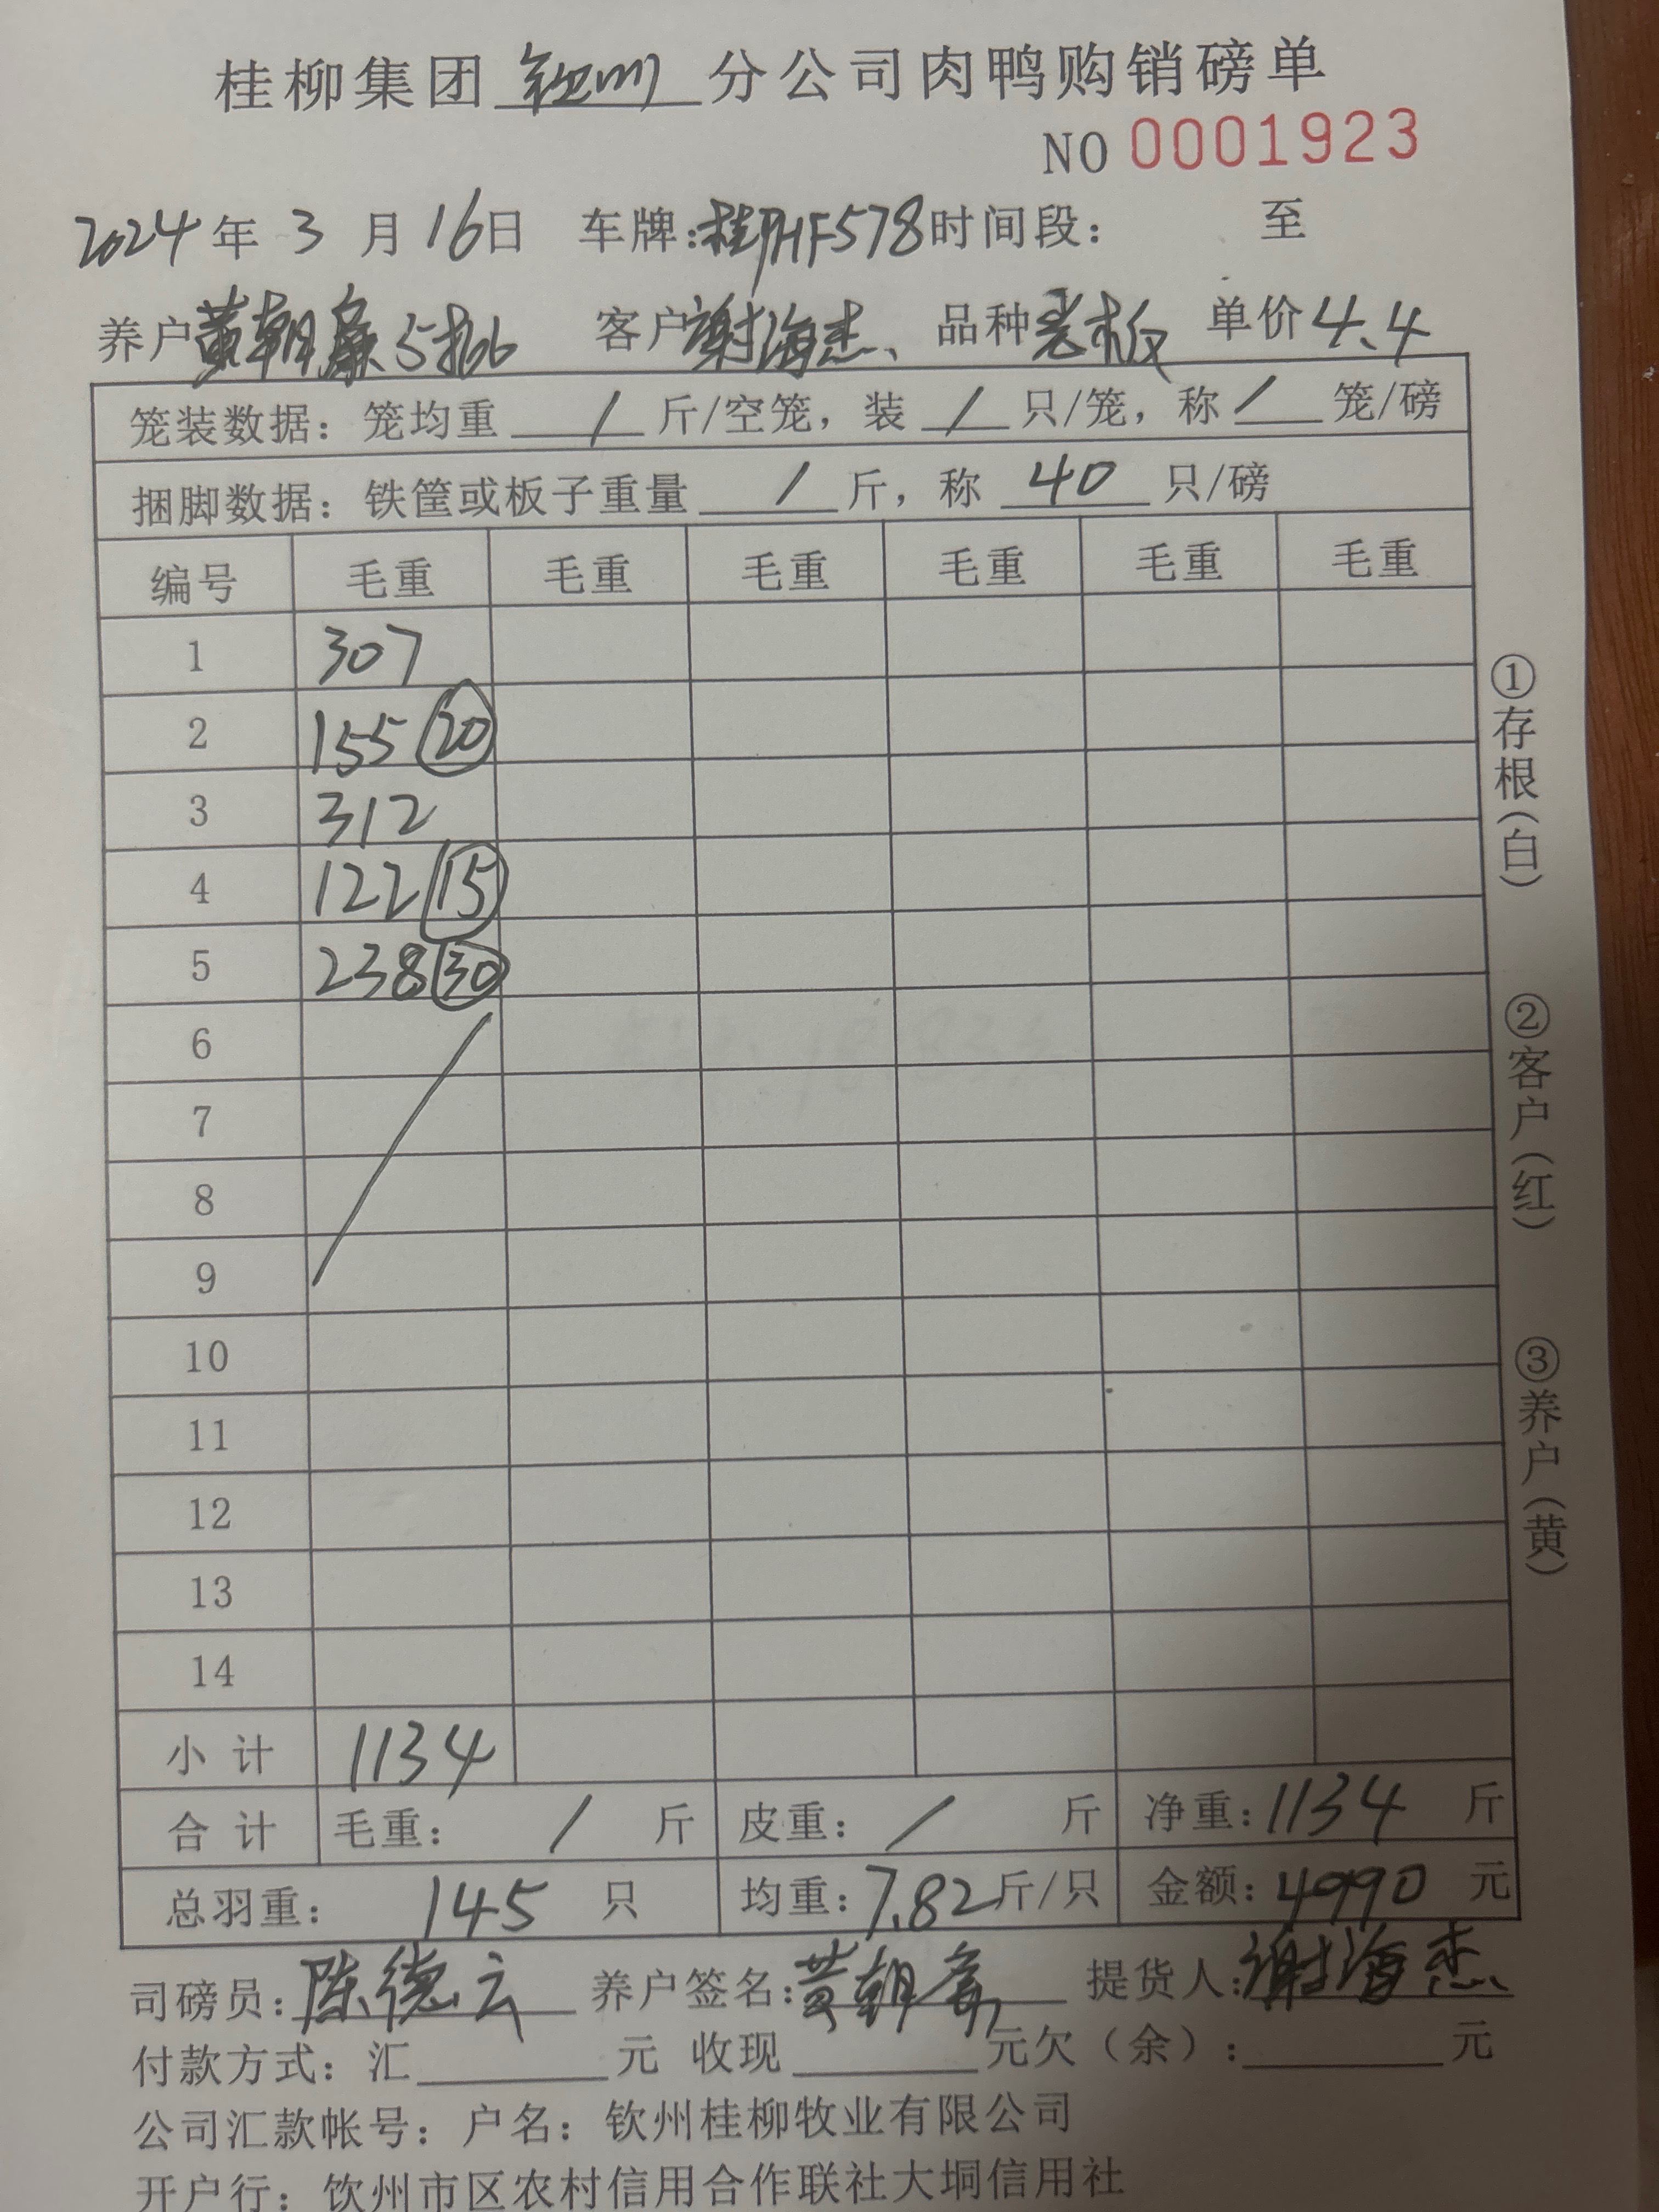 桂柳集团 钦州 分公司肉鸭购销磅单
NO 0001923
2024年 3 月 16日 车牌:桂PHF578 时间段: 至
养户 黄朝 5批 客户 谢海杰 品种 老板 单价 4.4
笼装数据: 笼均重 / 斤/空笼, 装 / 只/笼, 称 / 笼/磅
捆脚数据: 铁筐或板子重量 / 斤, 称 40 只/磅
编号 毛重 毛重 毛重 毛重 毛重 毛重
1 307
2 155 20
3 312
4 122 15
5 238 30
6
7
8
9
10
11
12
13
14
小 计 1134
合 计 毛重: / 斤 皮重: / 斤 净重: 1134 斤
总羽重: 145 只 均重: 7.82 斤/只 金额: 4990 元
司磅员: 陈德云 养户签名: 黄朝 提货人: 谢海杰
付款方式: 汇 元 收现 元欠(余): 元
公司汇款帐号: 户名: 钦州桂柳牧业有限公司
开户行: 钦州市区农村信用合作联社大垌信用社
①存根(白)
②客户(红)
③养户(黄)